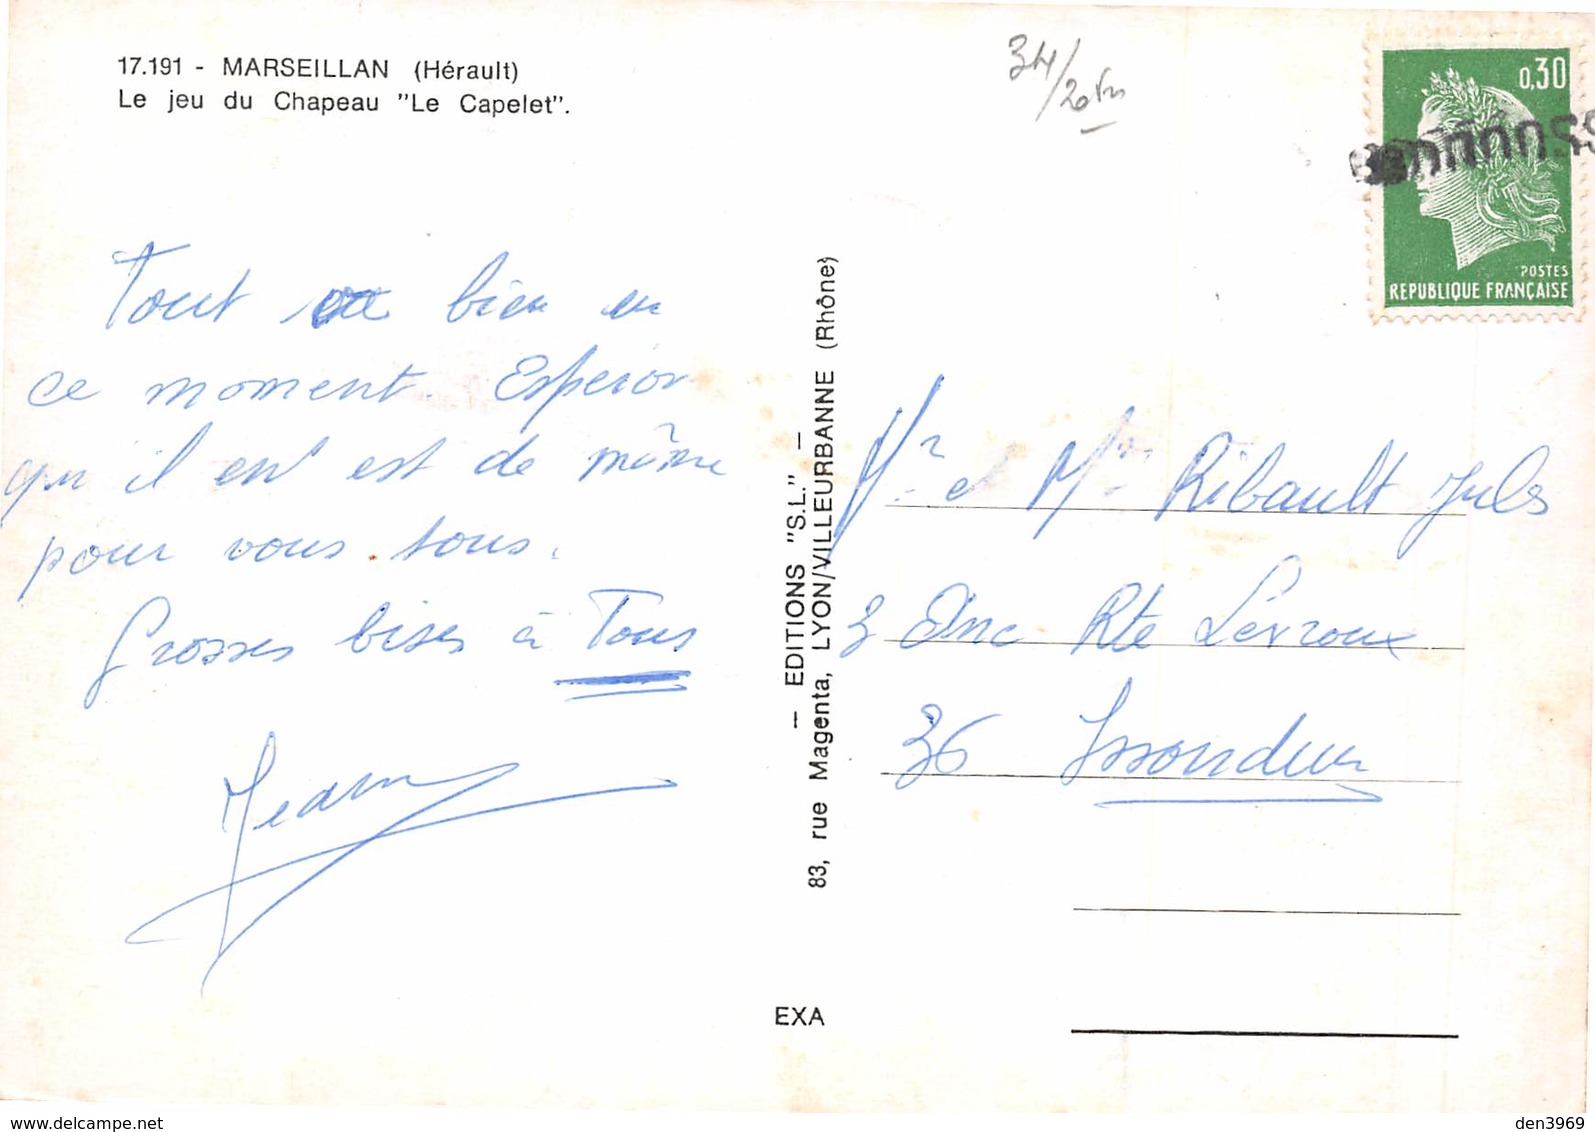 17.191 - MARSEILLAN (Hérault)
Le jeu du Chapeau "Le Capelet".
34/
0,30
POSTES
REPUBLIQUE FRANÇAISE
Tout va bien en
ce moment. Esperor
qu il en est de même
pour vous tous.
Grosses bises à Tous
Jean
— EDITIONS "S.L." —
83, rue Magenta, LYON/VILLEURBANNE (Rhône)
EXA
Mr et Mme Ribault Jules
3 Anc Rte Levroux
36 Issoudun
delcampe.net
den3969